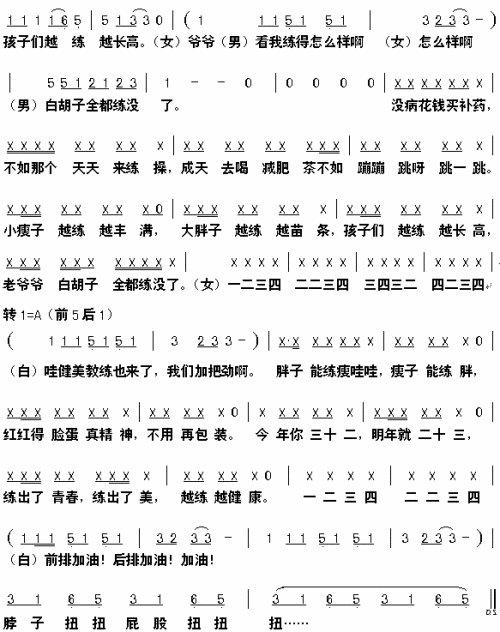 1 1 1 1 6 5 | 5 1 3 3 0 | ( 1 1 1 1 5 1 5 1 | 3 2 3 3 - )
孩子们越 练 越长高。(女) 爷爷 (男) 看我练得怎么样啊 (女) 怎么样啊
| 5 5 1 2 1 2 3 | 1 - - 0 | 0 0 0 0 | X X X X X X X |
(男) 白胡子全都练没 了。 没病花钱买补药,
X X X X X X X X X | X X X X X X X X | X X X X X X X |
不如那个 天天 来练 操, 成天 去喝 减肥 茶不如 蹦蹦 跳呀 跳一 跳。
X X X X X X X X 0 | X X X X X X X X | X X X X X X X X |
小瘦子 越练 越丰 满, 大胖子 越练 越苗 条, 孩子们 越练 越长 高,
X X X X X X X X X X X | X X X X | X X X X | X X X X | X X X X |
老爷爷 白胡子 全都练没了。(女) 一二三四 二二三四 三四三二 四二三四
转 1=A (前 5 后 1)
( 1 1 1 5 1 5 1 | 3 2 3 3 - ) | X·X X X X X X | X X X X X 0 |
(白) 哇健美教练也来了, 我们加把劲啊。 胖子 能练瘦哇哇, 瘦子 能练 胖,
X X X X X X X X | X X X X X 0 | X X X X X X X | X X X X X X X 0 |
红红得 脸蛋 真精 神, 不用 再包 装。 今 年你 三十 二, 明年就 二十 三,
X X X X X X X X X | X X X X X 0 | X X X X | X X X X |
练出了 青春, 练出了 美, 越练 越健 康。 一 二 三 四 二 二 三 四
( 1 1 1 5 1 5 1 | 3 2 3 3 - | 1 1 1 5 1 5 1 | 3 2 3 3 - ) |
(白) 前排加油! 后排加油! 加油!
3 1 6 5 3 1 6 5 | 3 1 6 5 3 1 6 5 ‖
脖 子 扭 扭 屁 股 扭 扭 扭……